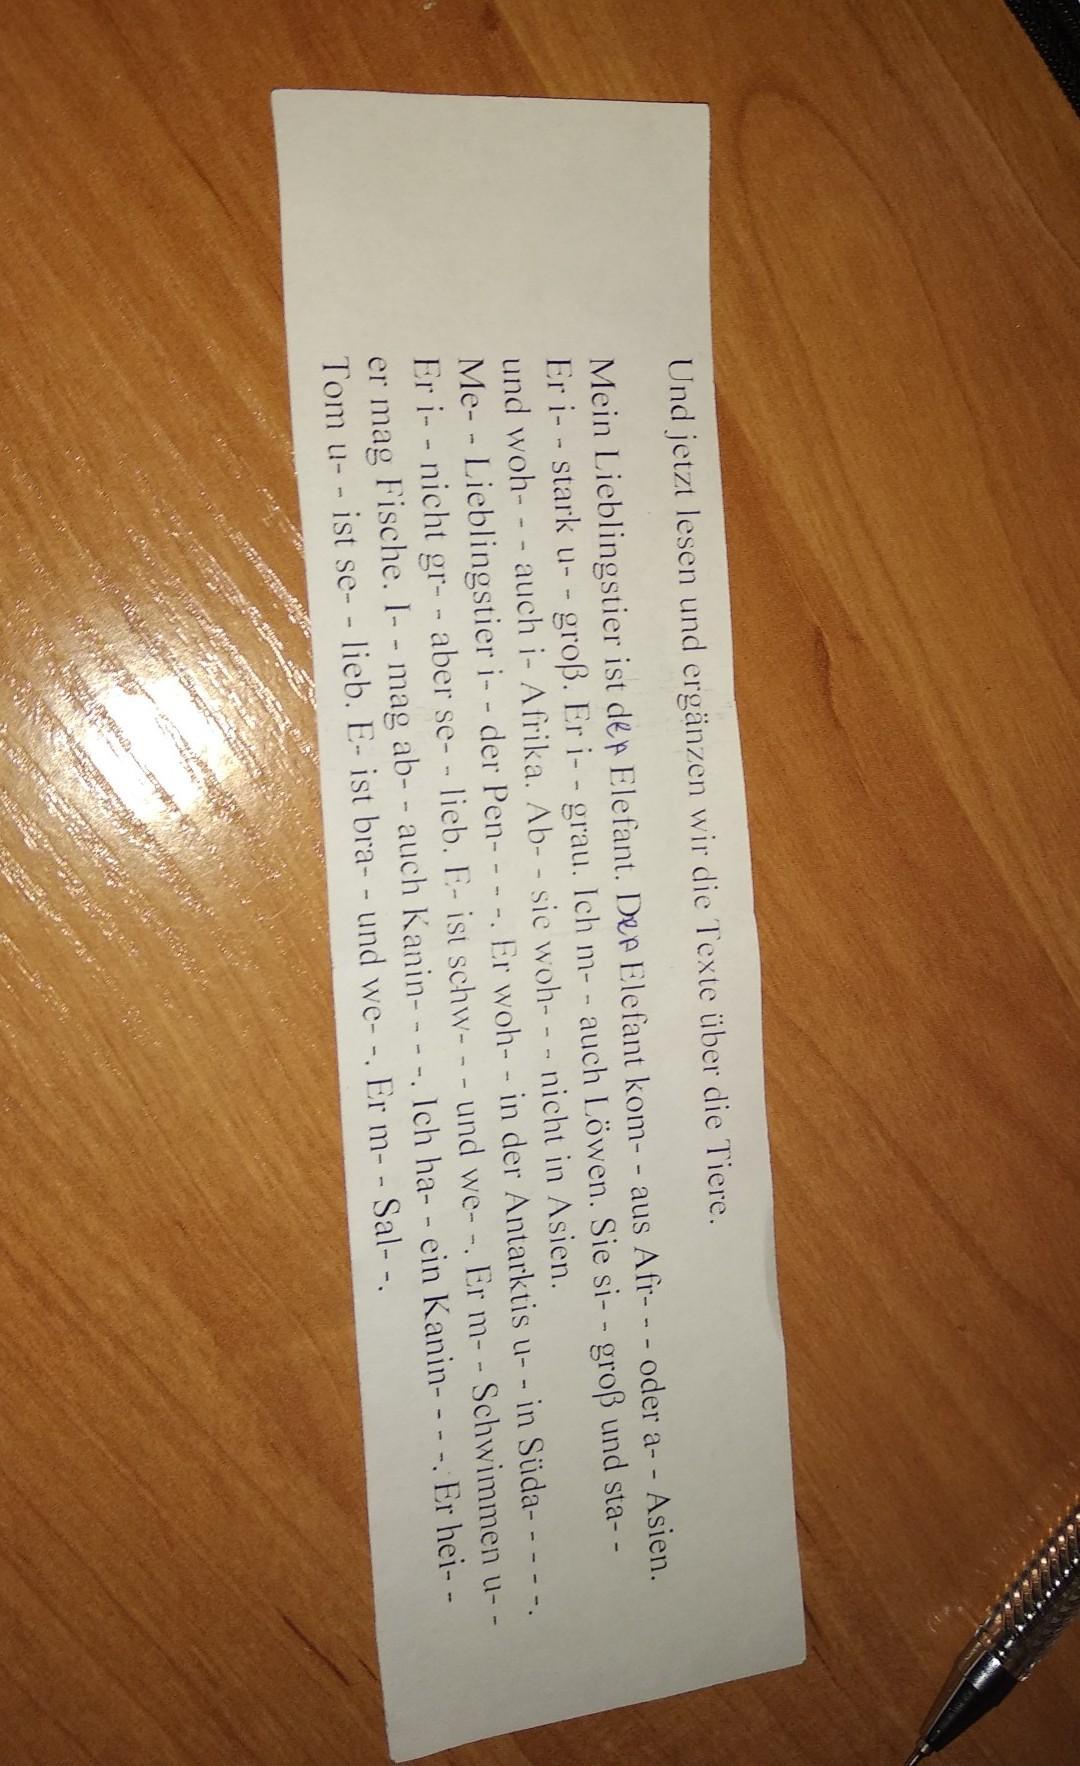 Und jetzt lesen und ergänzen wir die Texte über die Tiere.
Mein Lieblingstier ist der Elefant. Der Elefant kom- - aus Afr- - - oder a- - Asien.
Er i- - stark u- - groß. Er i- - grau. Ich m- - auch Löwen. Sie si- - groß und sta- -
und woh- - - auch i- Afrika. Ab- - sie woh- - - nicht in Asien.
Me- - Lieblingstier i- - der Pen- - - -. Er woh- - in der Antarktis u- - in Süda- - - - -.
Er i- - nicht gr- - aber se- - lieb. E- ist schw- - - und we- -. Er m- - Schwimmen u- -
er mag Fische. I- - mag ab- - auch Kanin- - - -. Ich ha- - ein Kanin- - - -. Er hei- -
Tom u- - ist se- - lieb. E- ist bra- - und we- -. Er m- - Sal- -.